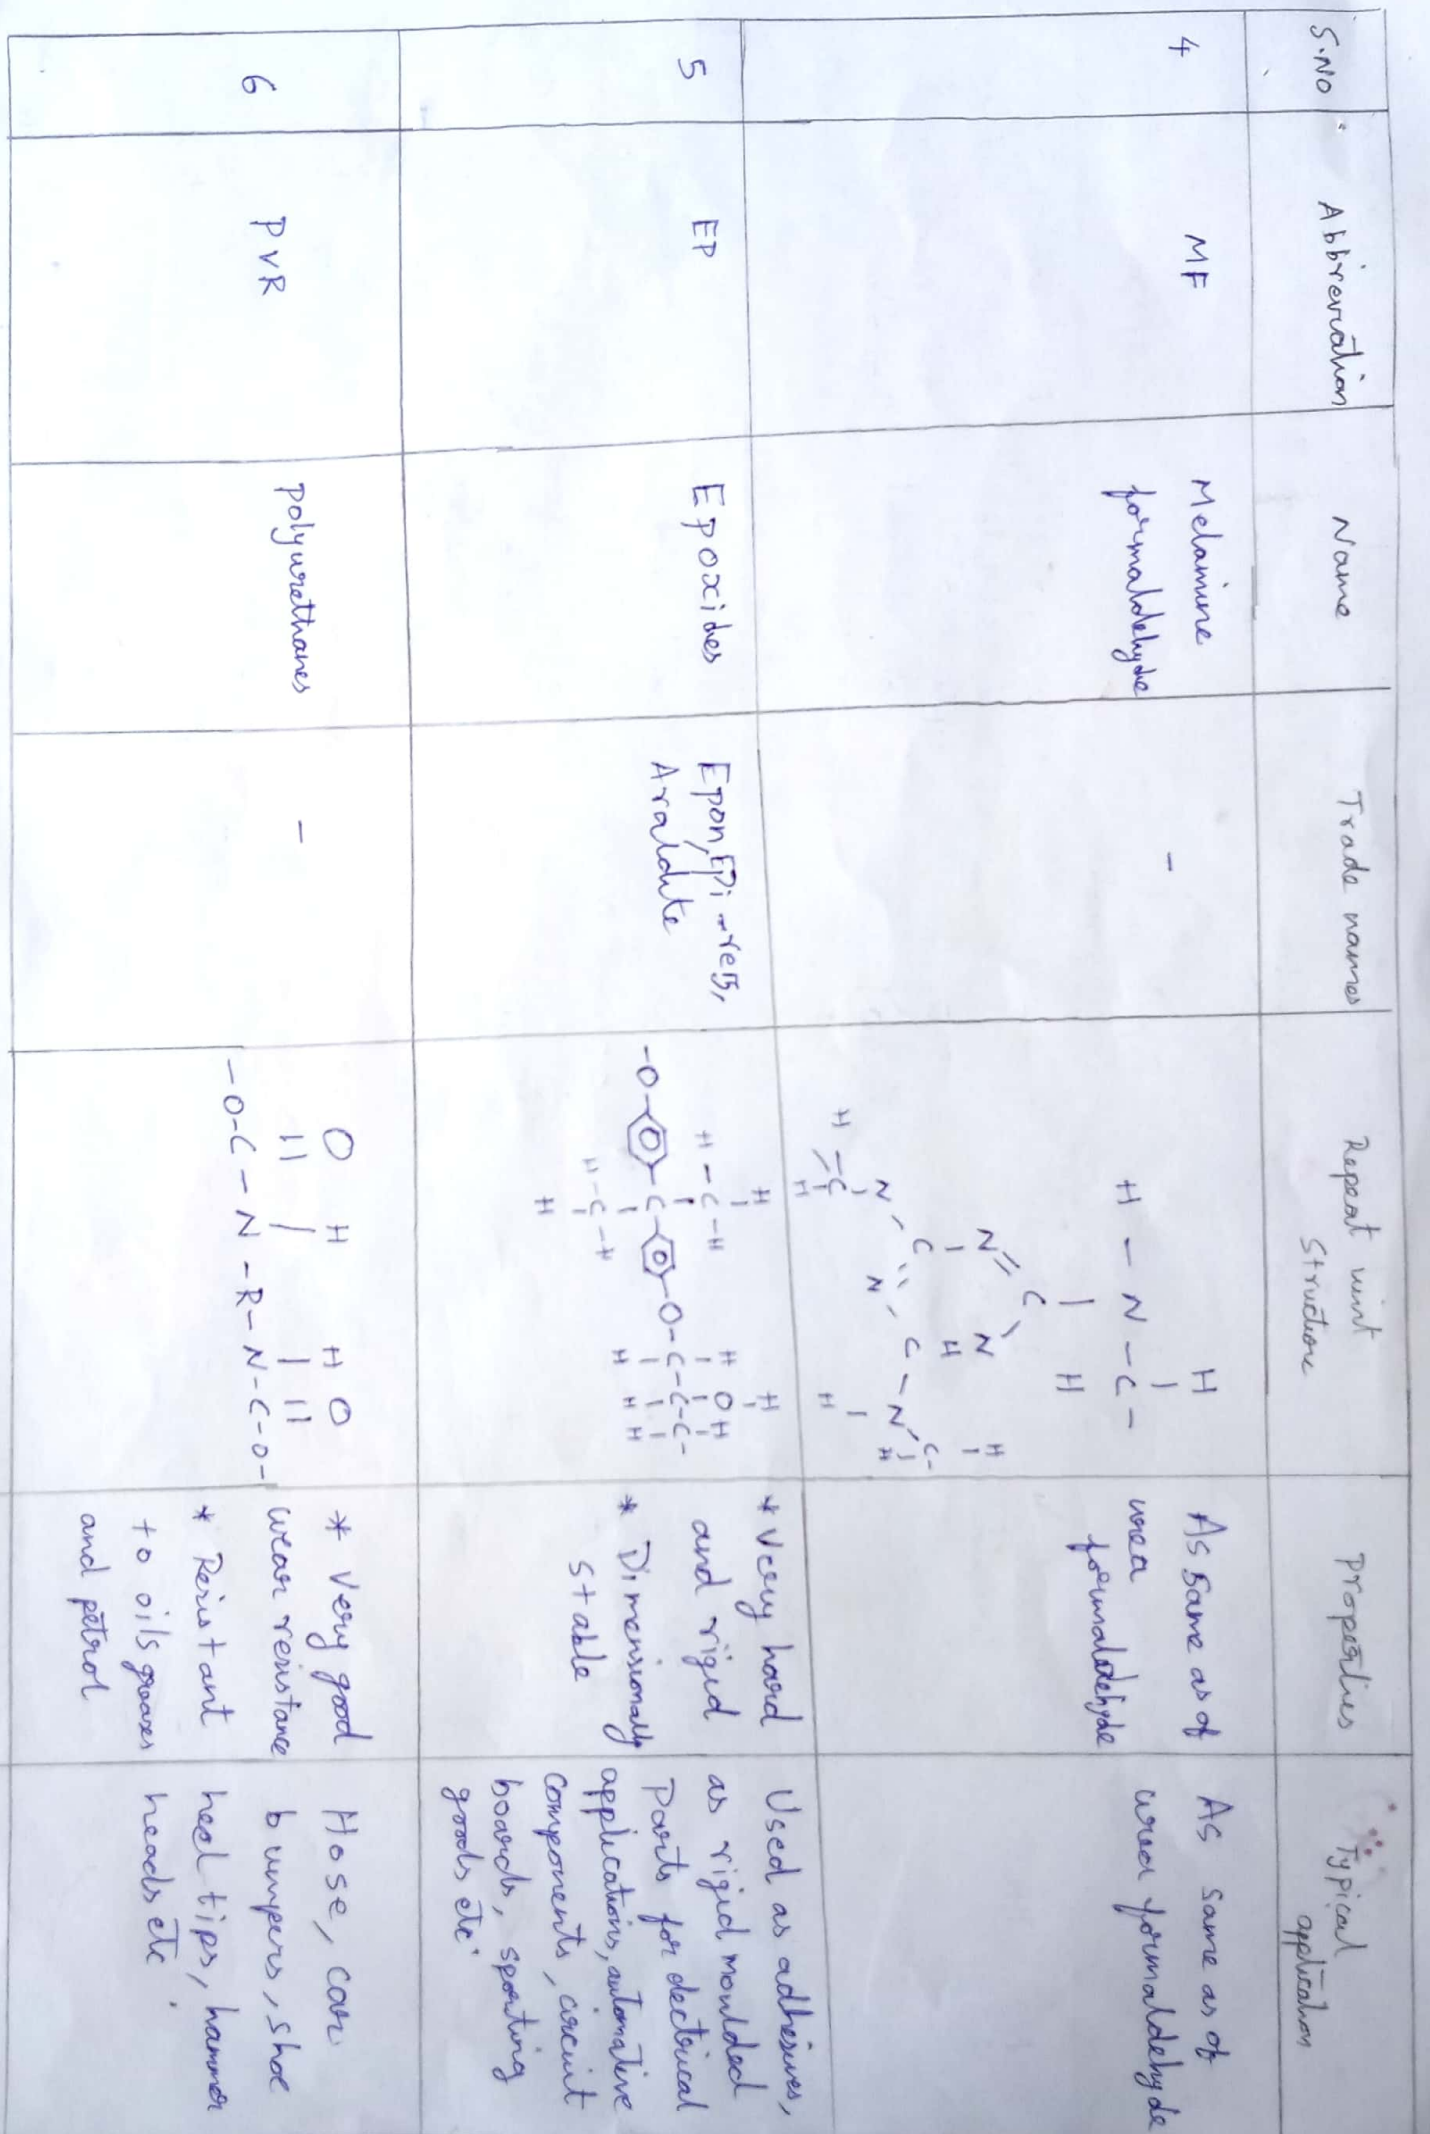 S.No
Abbreviation
Name
Trade names
Repeat unit
structure
Properties
Typical
application
4
MF
Melamine
formaldehyde
-
H
H - N - C -
H
N C N H
H - C N C N C N C -
H H H H
As same as of
urea
formaldehyde
As same as of
urea formaldehyde
5
EP
Epoxides
Epon, EPi-res,
Araldite
H H
H - C - H H OH H
-O- -C- -O-C-C-C-
H - C - H H H H
H
* Very hard
and rigid
* Dimensionally
stable
Used as adhesives,
as rigid moulded
Parts for electrical
applications, automative
components, circuit
boards, sporting
goods etc.
6
PVR
polyurethanes
-
O H H O
-O-C-N-R-N-C-O-
* Very good
wear resistance
* Resistant
to oils greases
and petrol
Hose, car
bumpers, shoe
heel tips, hammer
heads etc.